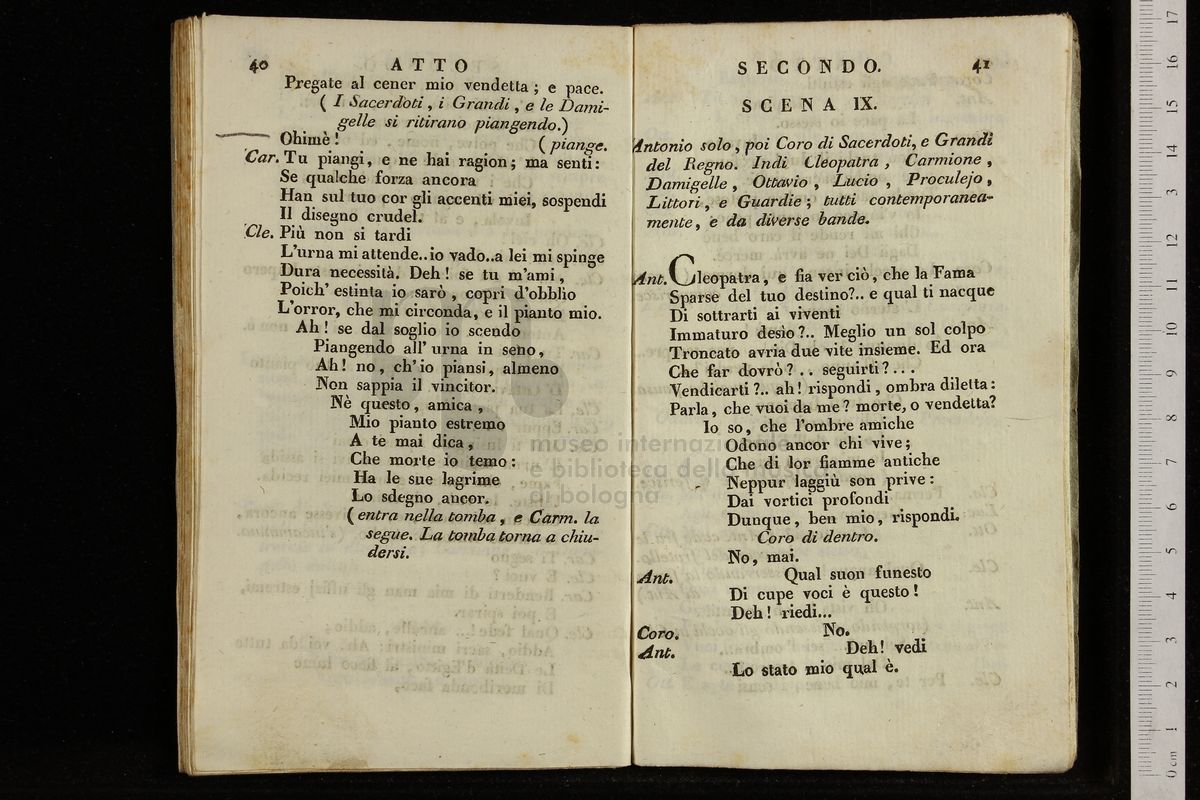 40
ATTO
Pregate al cener mio vendetta ; e pace.
( I Sacerdoti , i Grandi , e le Dami-
gelle si ritirano piangendo.)
Ohimè ! ( piange.
Car. Tu piangi, e ne hai ragion; ma senti:
Se qualche forza ancora
Han sul tuo cor gli accenti miei, sospendi
Il disegno crudel.
Cle. Più non si tardi
L'urna mi attende..io vado..a lei mi spinge
Dura necessità. Deh ! se tu m'ami ,
Poich' estinta io sarò , copri d'obblio
L'orror, che mi circonda, e il pianto mio.
Ah ! se dal soglio io scendo
Piangendo all' urna in seno,
Ah ! no , ch' io piansi, almeno
Non sappia il vincitor.
Nè questo , amica ,
Mio pianto estremo
A te mai dica ,
Che morte io temo :
Ha le sue lagrime
Lo sdegno ancor.
( entra nella tomba , e Carm. la
segue. La tomba torna a chiu-
dersi.
SECONDO.
41
SCENA IX.
Antonio solo , poi Coro di Sacerdoti, e Grandi
del Regno. Indi Cleopatra , Carmione ,
Damigelle , Ottavio , Lucio , Proculejo ,
Littori , e Guardie ; tutti contemporanea-
mente , e da diverse bande.
Ant. Cleopatra, e fia ver ciò , che la Fama
Sparse del tuo destino?.. e qual ti nacque
Di sottrarti ai viventi
Immaturo desìo ?.. Meglio un sol colpo
Troncato avria due vite insieme. Ed ora
Che far dovrò ? . . seguirti ? . . .
Vendicarti ?.. ah ! rispondi , ombra diletta :
Parla , che vuoi da me ? morte, o vendetta?
Io so, che l'ombre amiche
Odono ancor chi vive ;
Che di lor fiamme antiche
Neppur laggiù son prive :
Dai vortici profondi
Dunque , ben mio , rispondi.
Coro di dentro.
No, mai.
Ant. Qual suon funesto
Di cupe voci è questo !
Deh ! riedi...
Coro. No.
Ant. Deh! vedi
Lo stato mio qual è.
museo internazionale
e biblioteca della musica
di bologna